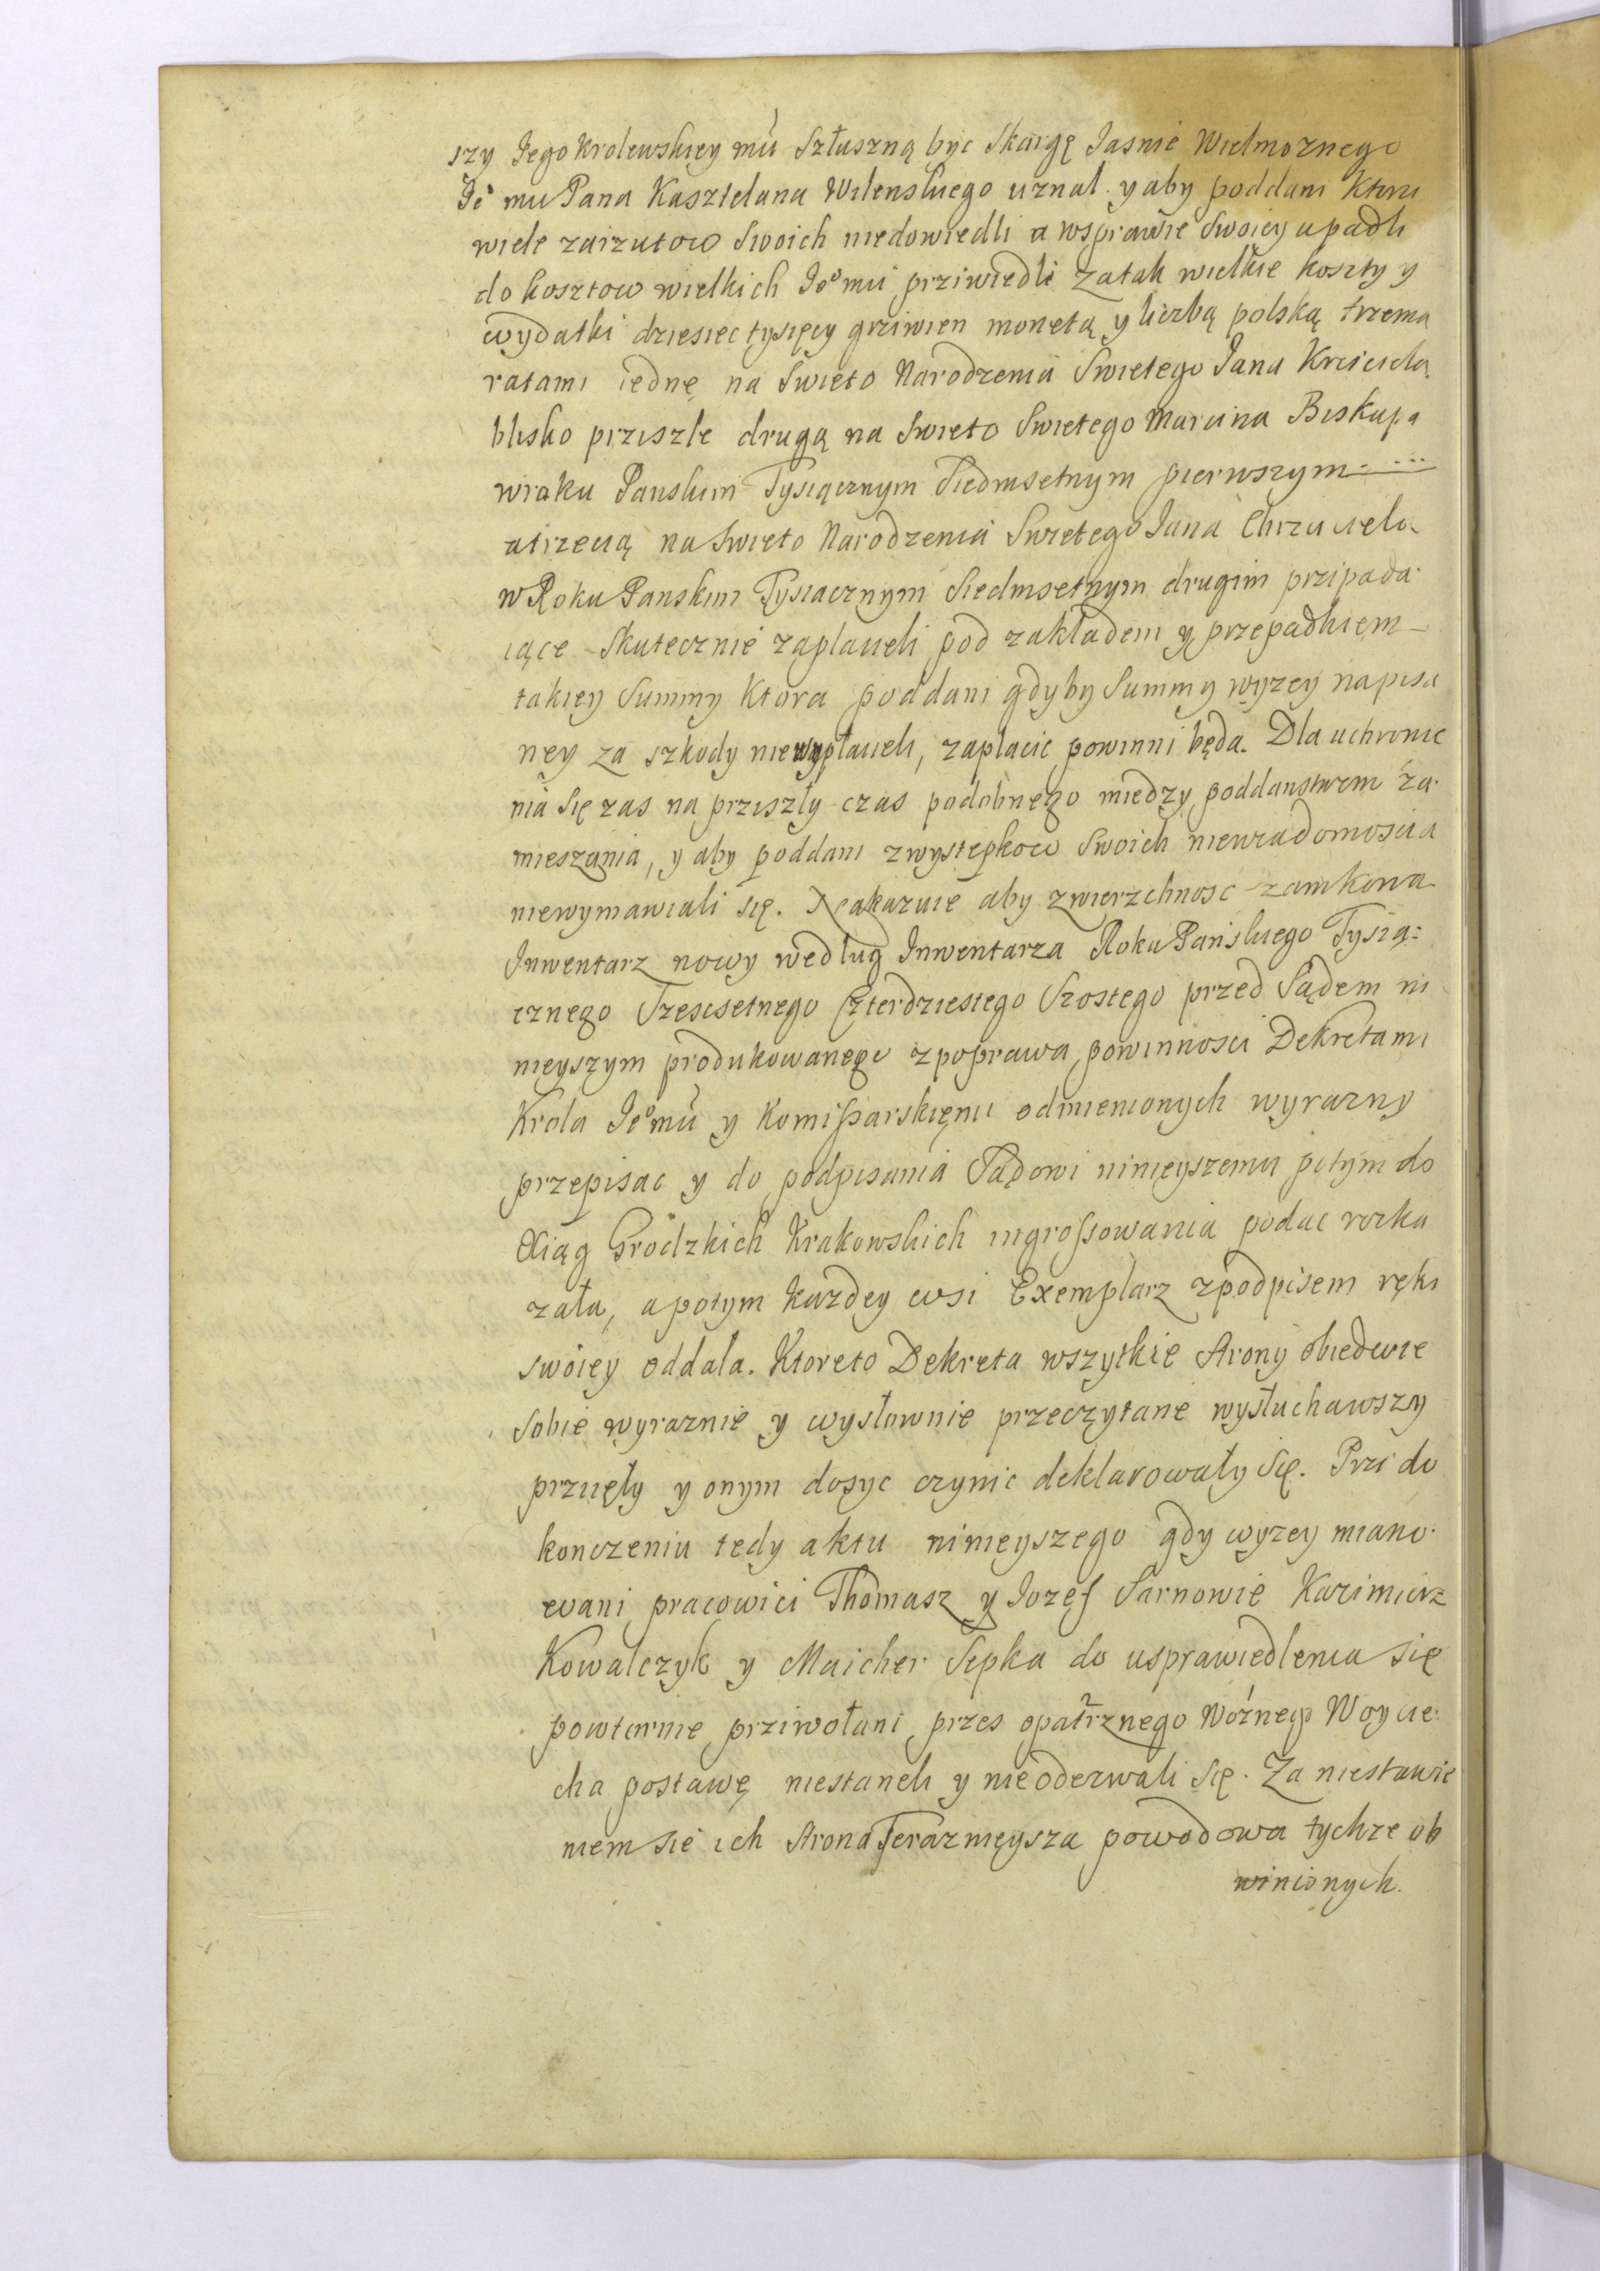 szy Iego Krolewskiey mu Szłuszną byc Skargę Iasnie Wielmoznego
Ie° mu Pana Kasztelana Wilenskiego uznał. y aby poddani ktorzi
wiele zarzutow Swoich niedowiedli a wsprawie Swoiey upadli
do kosztow wielkich Ie°mu prziwiedli za tak wielkie koszty y
wydatki dziesiec tysięcy grziwien monetą y liczbą polską trzema
ratami iednę na Swieto Narodzenia Swietego Iana Krzciciela
blisko prziszłe drugą na Swieto Swietego Marcina Biskupa
wroku Panskim Tysiącznym Siedmsetnym pierwszym
a trzecią na Swieto Narodzenia Swietego Iana Chrzciciela
w Roku Panskim Tysiacznym Siedmsetnym drugim przipada
iące Skutecznie zaplacieli pod zakładem y przepadkiem
takiey Summy ktora poddani gdyby Summy wyzey napisa
ney za szkody niewypłacieli, zaplacic powinni będa. Dla uchronie
nia Się zas na prziszły czas podobnego miedzy poddanstwem za
mieszania, y aby poddani zwystepkow Swoich niewiadomoscia
niewymawiali się. Nakazuie aby zwierzchnosc zamkowa
Inwentarz nowy według Inwentarza Roku Panskiego Tysią:
cznego Szescsetnego Czterdziestego Szostego przed Sądem ni
nieyszym produkowanego zpoprawa powinnosci Dekretami
Krola Ie°mu y Komissarskiemi odmienionych wyrazny
przepisac y do podpisania Sądowi ninieyszemu potym do
Xiąg Grodzkich Krakowskich ingrossowania podac rozka
zała, a potym kazdey wsi Exemplarz zpodpisem ręki
swoiey oddała. Ktoreto Dekreta wszytkie Strony obiedwie
Sobie wyraznie y wysłownie przeczytane wysłuchawszy
przyięły y onym dosyc czynic deklarowały Się. Przi do
konczeniu tedy aktu ninieyszego gdy wyzey miano
wani pracowici Thomasz y Iozef Sarnowie Kazimierz
Kowalczyk y Maicher Sepka do usprawiedlenia się
powtornie prziwołani przes opatrznego Woznego Woycie
cha postawę niestaneli y nieoderwali Się. Za niestawie
niem Sie ich Strona Teraznieysza powodowa tychze ob
winionych.